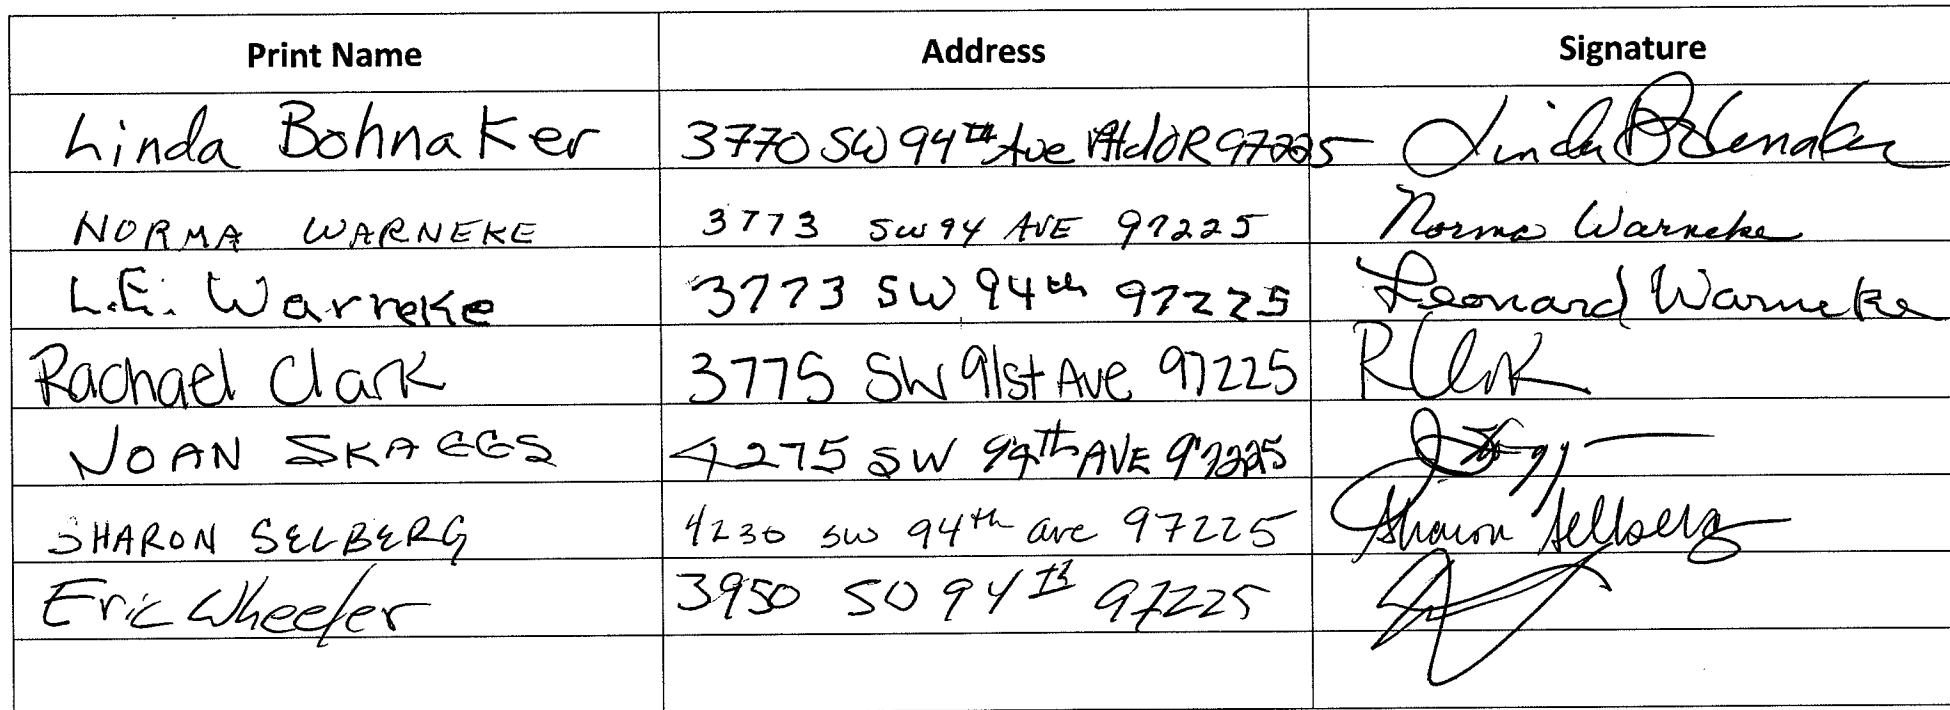 Print Name Address Signature
Linda Bohnaker 3770 SW 94th Ave Ptld OR 97225 Linda Bohnaker
NORMA WARNEKE 3773 SW 94 AVE 97225 Norma Warneke
L.E. Warneke 3773 SW 94th 97225 Leonard Warneke
Rachael Clark 3775 SW 91st Ave 97225 R Clark
JOAN SKAGGS 4275 SW 94th AVE 97225
SHARON SELBERG 4230 SW 94th ave 97225 Sharon Sellberg
Eric Wheeler 3950 SO 94th 97225